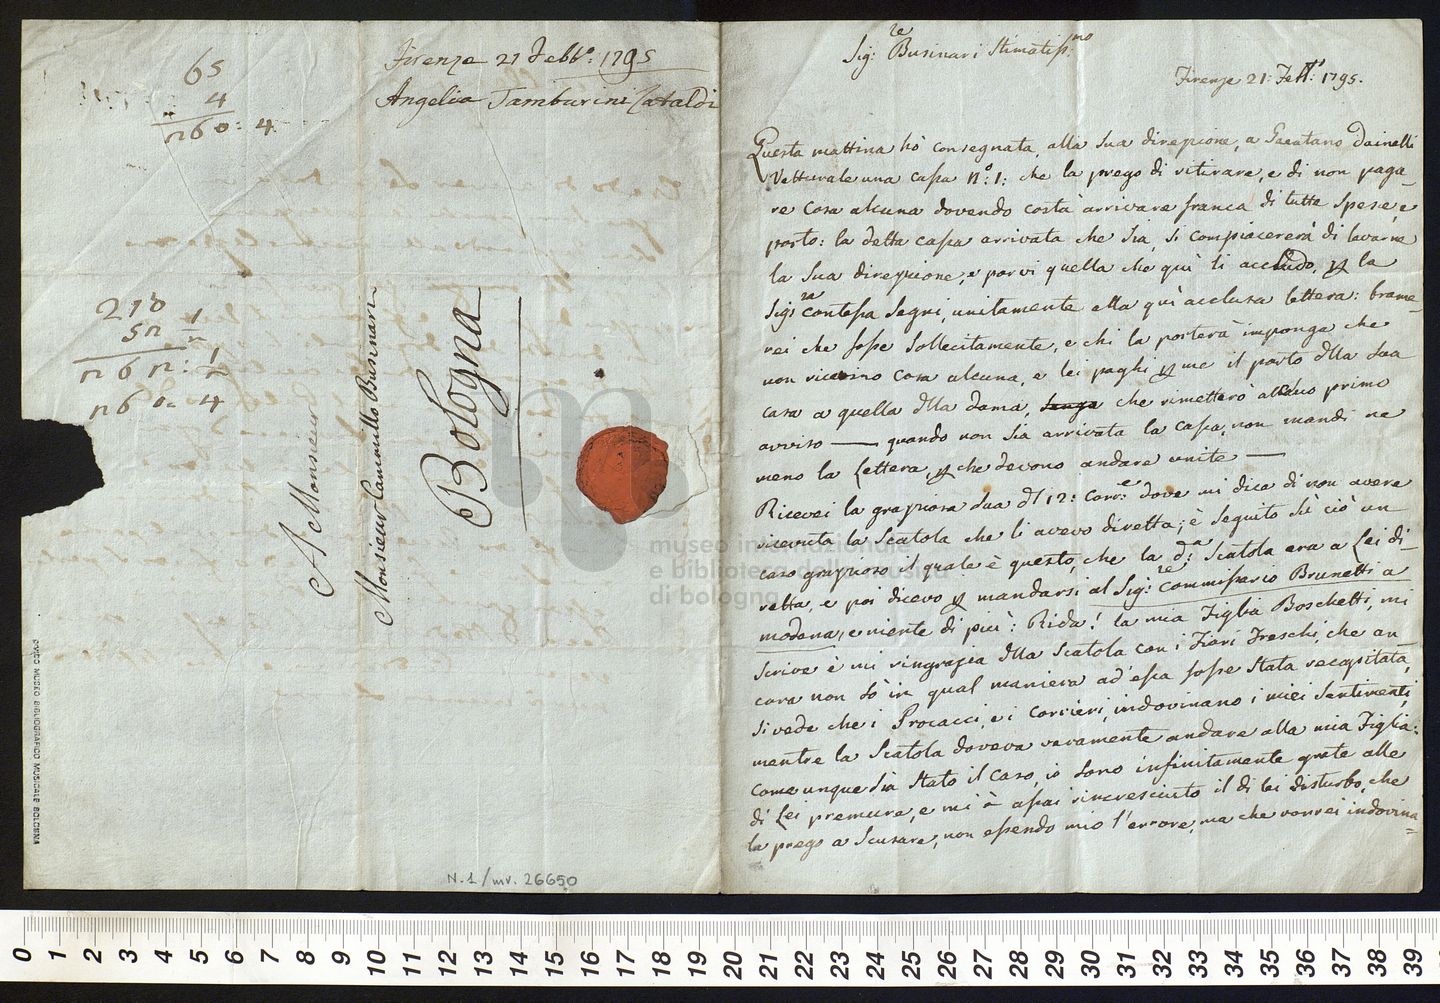 65
4
260: 4
Firenze 21 Febb.o: 1795
Angelica Tamburini Cataldi
210
52 1/2
262: 1/2
260= 4
A Monsieur
Monsieur Cammillo Businari
Bologna
N. 1/inv. 26650
CIVICO MUSEO BIBLIOGRAFICO MUSICALE BOLOGNA
museo internazionale
e biblioteca della musica
di bologna
Sig:re Businari Stimatiss:mo
Firenze 21: Febb:o 1795.
Questa mattina hò consegnata, alla Sua direzione, a Gaetano Dainelli
Vetturale una cassa N:o 1: che la prego di ritirare, e di non paga-
re cosa alcuna dovendo costà arrivare franca di tutte spese, e
porto: la detta cassa arrivata che sia, si compiacererà di lavarne
la Sua direzione, e porvi quella che quì li accludo, p la
Sig:ra Contessa Segni, unitamente alla quì acclusa lettera: brame-
rei che fosse sollecitamente, e chi la porterà imponga che
non ricevino cosa alcuna, e lei paghi p me il porto dlla sua
casa a quella dlla Dama, che rimetterò al primo
avviso — quando non sia arrivata la Cassa, non mandi ne
meno la Lettera, p che devono andare unite —
Ricevei la graziosa Sua dl 12: corr:e dove mi dice di non avere
ricevuta la Scatola che li avevo diretta; è seguito sù ciò un
caso grazioso il quale è questo, che la d:a Scatola era a Lei di-
retta, e poi dicevo p mandarsi al Sig:re Commissario Brunetti a
Modana, e niente di più: Rida! la mia Figlia Boschetti, mi
scrive è mi ringrazia dlla Scatola con i Fiori Freschi, che an-
cora non sò in qual maniera ad'essa fosse stata recapitata,
si vede che i Procacci, e i Corrieri, indovinano i miei sentimenti,
mentre la Scatola doveva veramente andare alla mia Figlia:
comeunque sia stato il caso, io sono infinitamente grata alle
di Lei premure, e mi è assai rincresciuto il di lei disturbo, che
la prego a scusare, non essendo mio l'errore, ma che vorrei indovina=
0 1 2 3 4 5 6 7 8 9 10 11 12 13 14 15 16 17 18 19 20 21 22 23 24 25 26 27 28 29 30 31 32 33 34 35 36 37 38 39